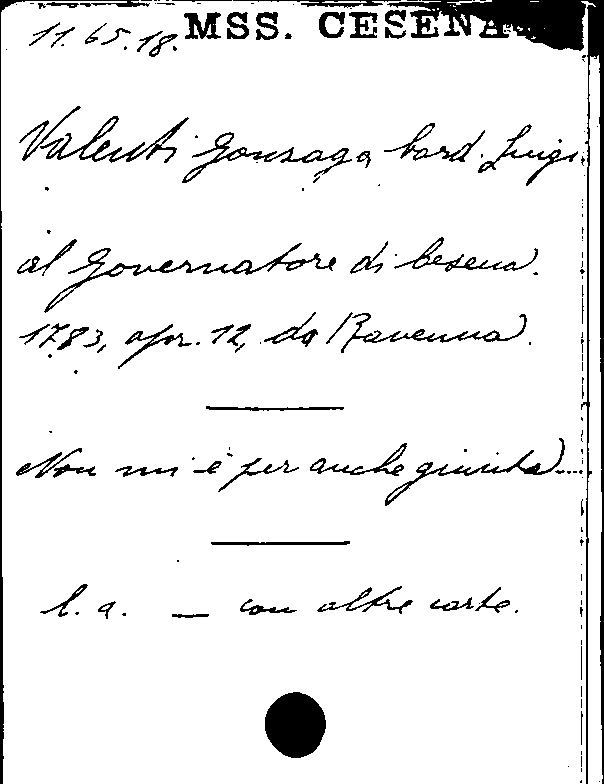 11.65.18. MSS. CESENA
Valenti Gonzaga Card. Luigi
al Governatore di Cesena.
1783, apr. 12, da Ravenna.
Non mi è per anche giunta....
l. a. — con altre carte.